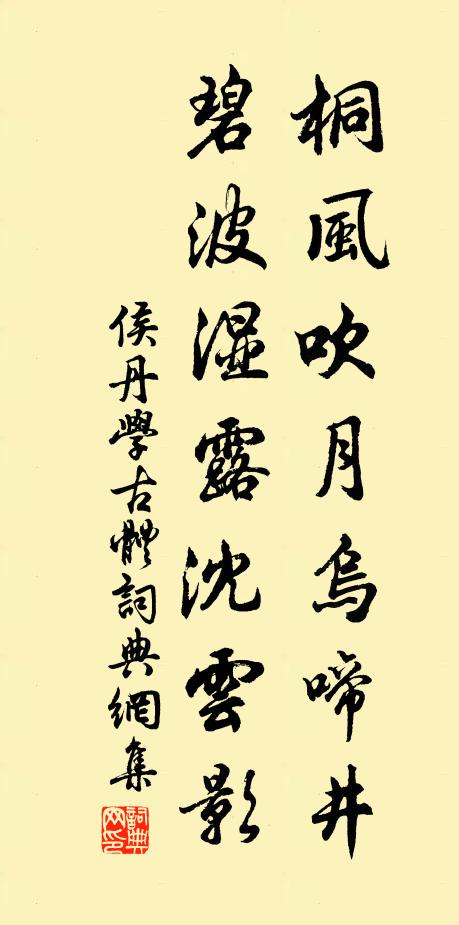 桐風吹月烏啼井
碧波濕露沈雲影
侯丹學古體詞典網集
詞典网印